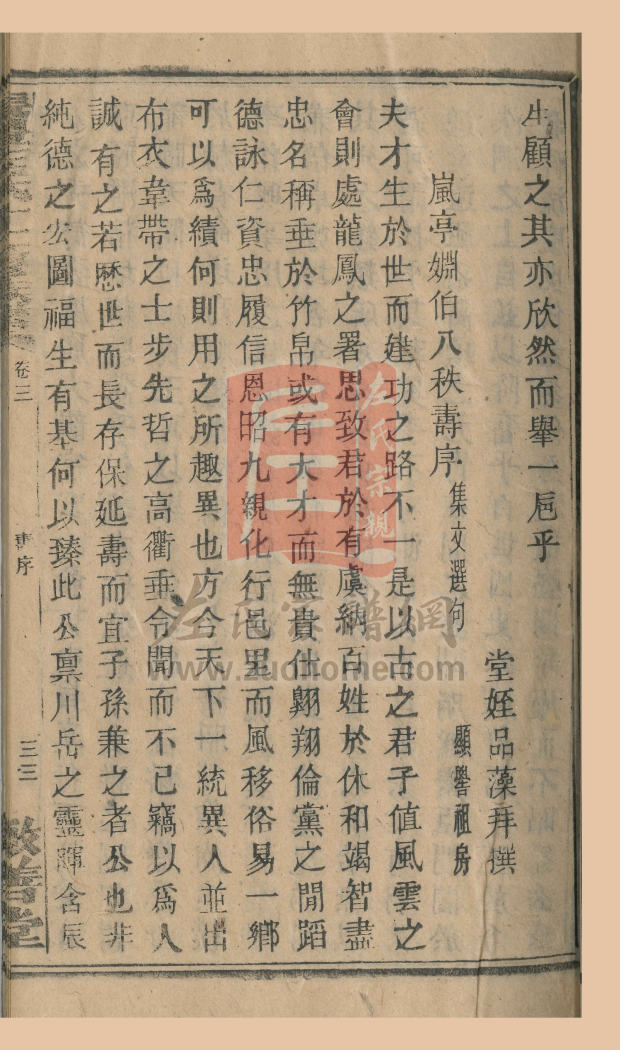 生顧之其亦欣然而舉一卮乎
堂姪品藻拜撰
嵐亭嫺伯八秩壽序 集文選句 顯譽祖房
夫才生於世而建功之路不一是以古之君子值風雲之
會則處龍鳳之署思致君於有虞納百姓於休和竭智盡
忠名稱垂於竹帛或有大才而無貴仕翱翔倫黨之間蹈
德詠仁資忠履信恩昭九親化行邑里而風移俗易一鄉
可以為績何則用之所趣異也方今天下一統異人並出
布衣韋帶之士步先哲之高衢垂令聞而不已竊以為人
誠有之若歷世而長存保延壽而宜子孫兼之者公也非
純德之宏圖福生有基何以臻此公稟川岳之靈暉含辰
卷三
壽序
三三
敬善堂
左氏宗親
左氏家譜網
www.zuotomer.com